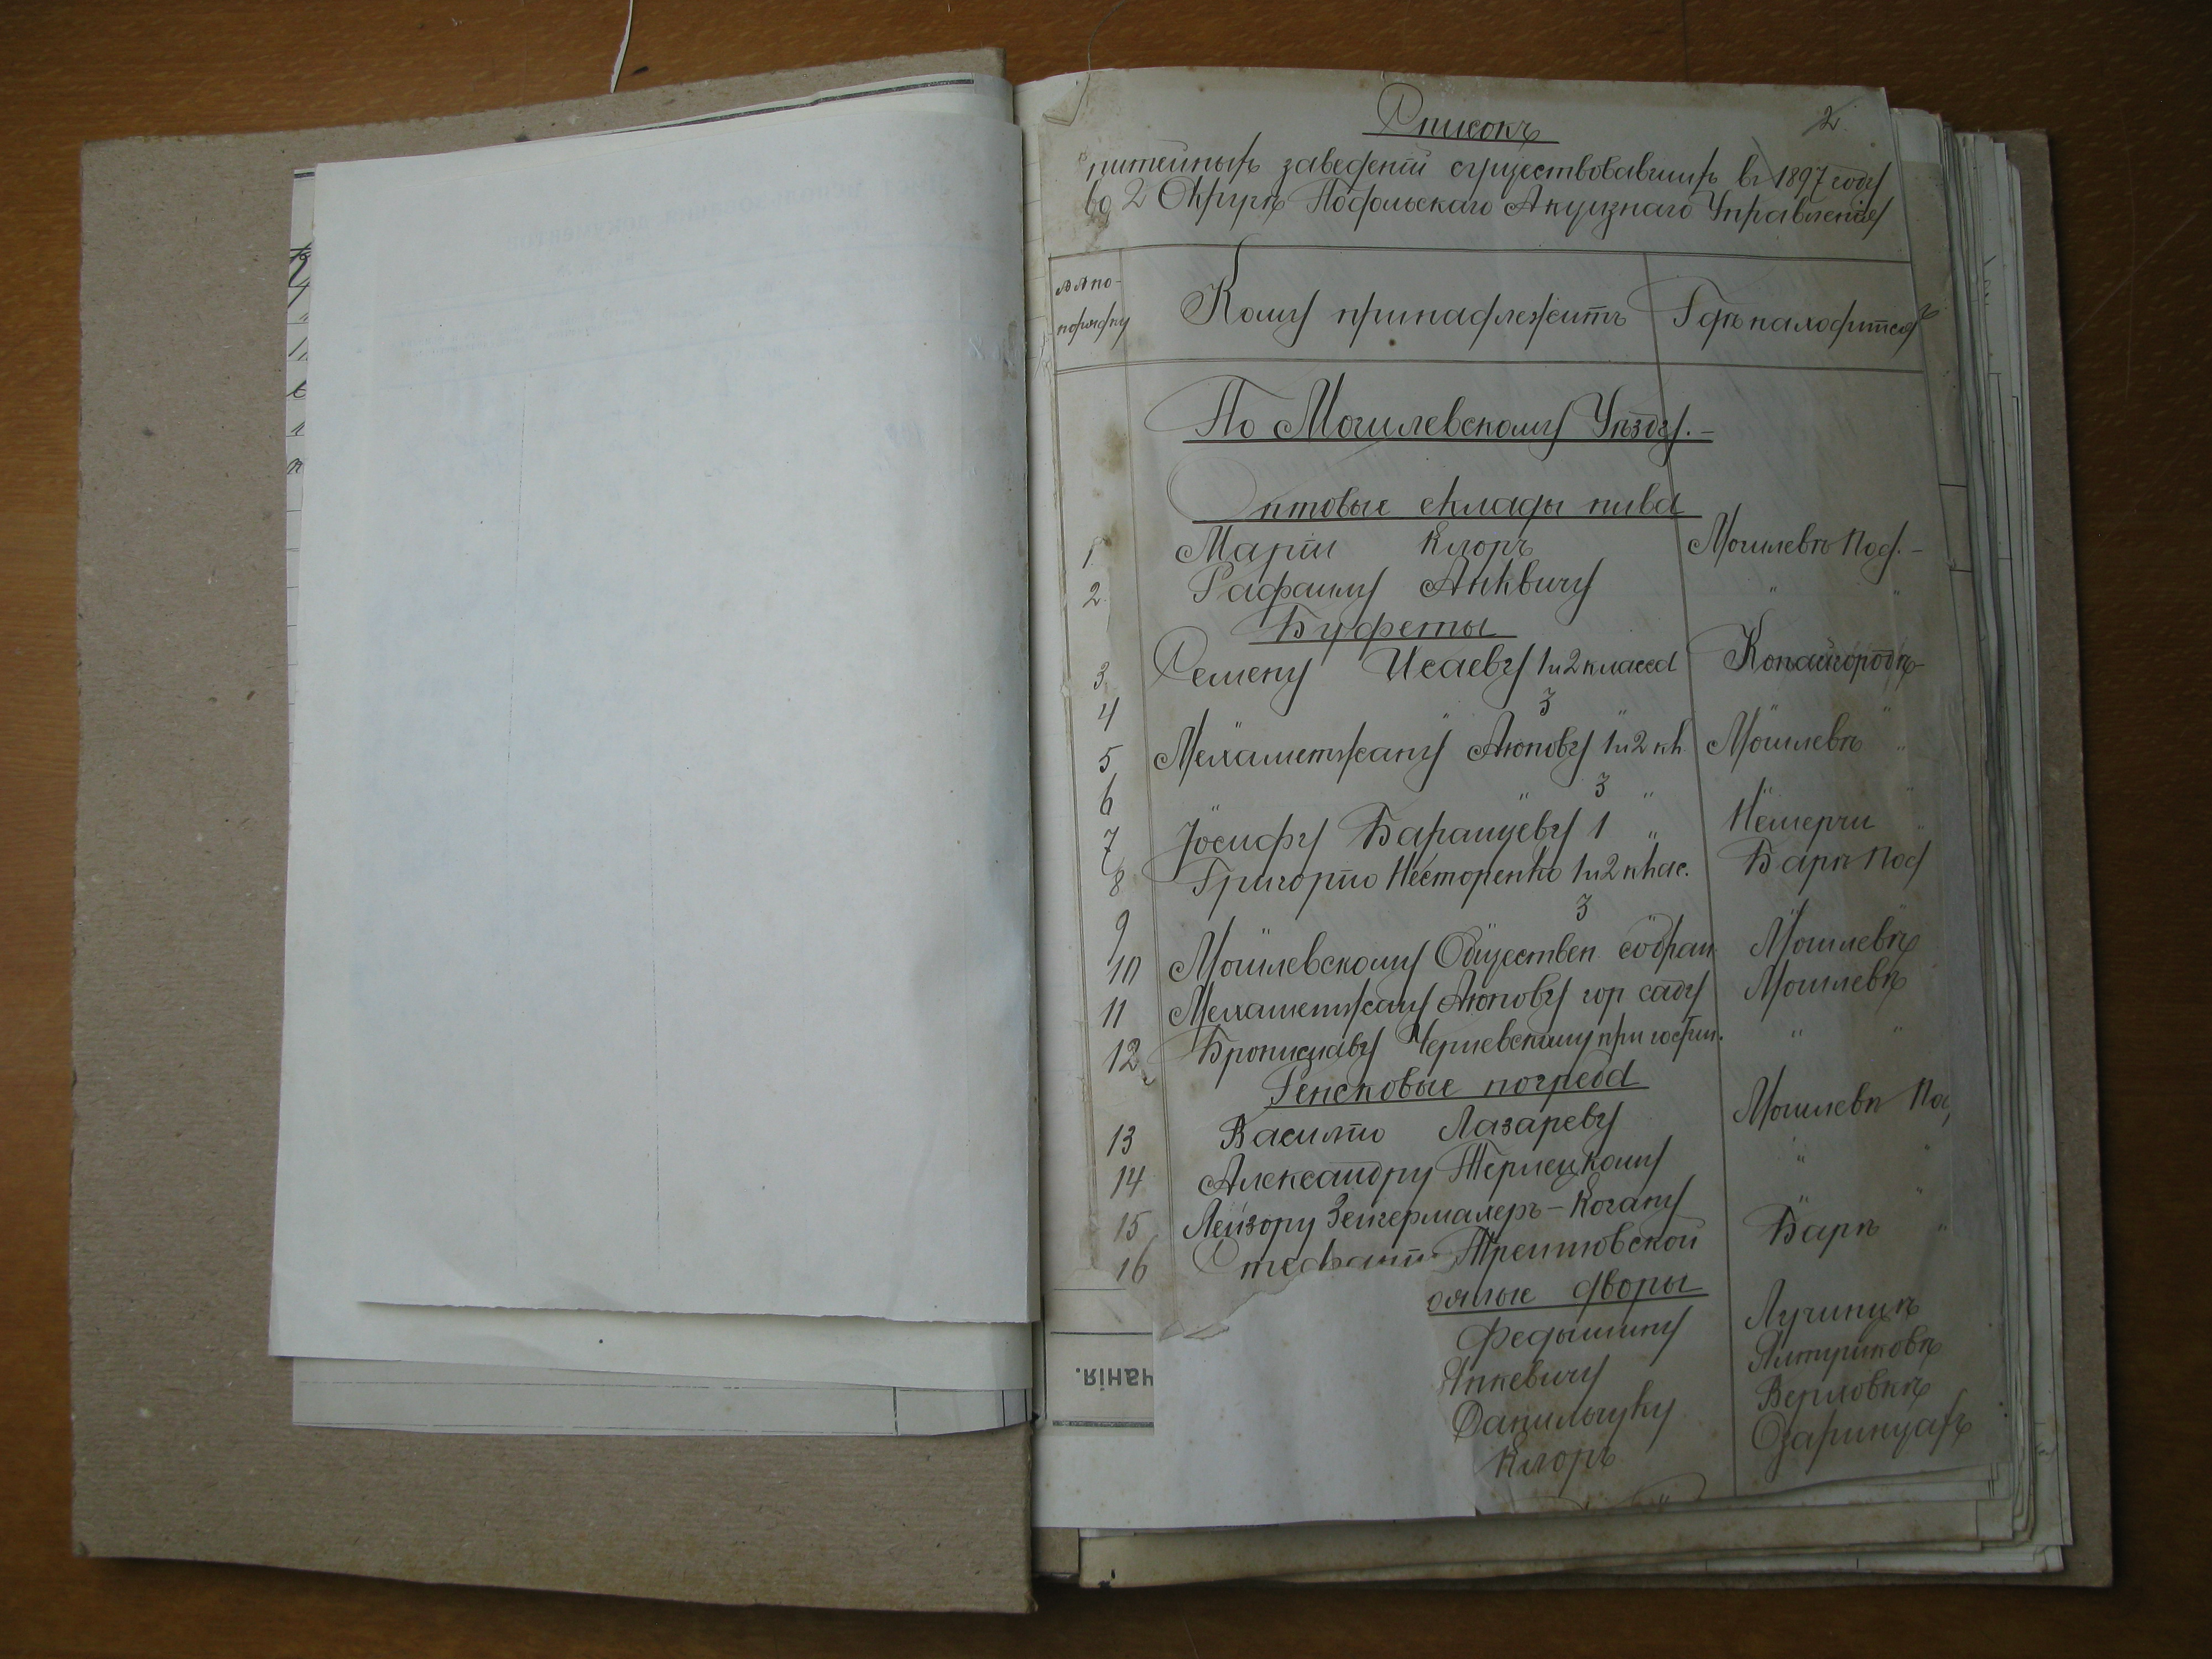 2
Списокъ
питейныхъ заведеній существовавшихъ въ 1897 году
во 2 Округѣ Подольскаго Акцизнаго Управленія
№№ по-
порядку
Кому принадлежитъ
Гдѣ находится
По Могилевскому Уѣзду.-
Оптовые склады пива
1 Маріи Клоръ Могилевѣ Под.-
2. Рафаилу Анквичу " "
Буфеты
3 Семену Исаеву 1 и 2 класса Копайгородѣ
4 " " 3 " "
5 Мехаметжану Аюпову 1 и 2 кл. Могилевѣ "
6 " " 3 " " "
7 Іосифу Баранцеву 1 " Немерчи "
8 Григорію Несторенко 1 и 2 клас. Барѣ Под
9 " " 3 " "
10 Могилевскому Обществен. собран Могилевѣ
11 Мехаметжану Аюпову гор саду Могилевѣ
12 Брониславу Черневскому при гостин. " "
Ренсковые погреба
13 Василію Лазареву Могилевѣ Под
14 Александру Терлецкому " "
15 Лейзору Зейгермахеръ-Когану " "
16 Стефаніи Трепповской Барѣ "
оялые дворы
Федышину Лучинцѣ
Янкевичу
Данильчуку Верховкѣ
Клоръ Озаринцахъ
чанія.